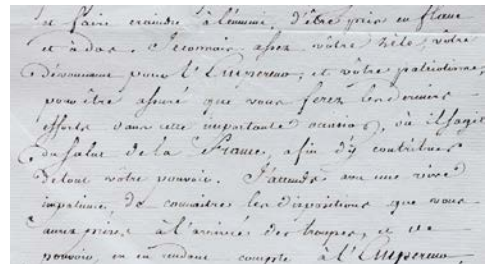 et faire craindre à l'ennemi, d'être pris en flanc
et à dos. Je connais assez vôtre zèle, vôtre
Dévouement pour l'Empereur, et vôtre patriotisme,
pour être assuré que vous ferez les derniers
efforts dans cette importante occasion, où il s'agit
du salut de la France, afin d'y contribuer
de tout votre pouvoir. J'attends avec une vive
impatience de connaitre les dispositions que vous
aurez prises à l'arrivée des troupes, et de
pouvoir, en en rendant compte à l'Empereur